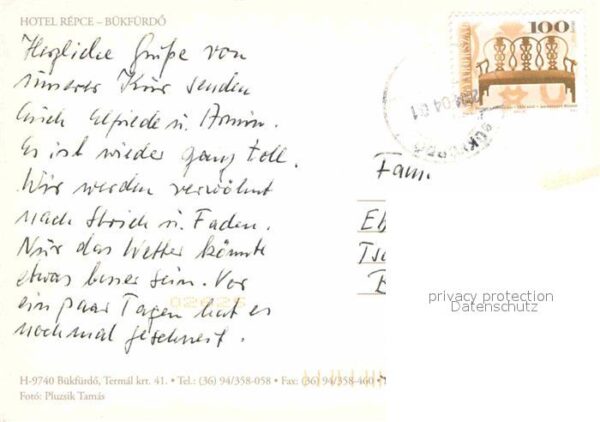 HOTEL RÉPCE – BÜKFÜRDŐ
Herzliche Grüße von
unserer Kur senden
Euch Elfriede u. Armin.
Es ist wieder ganz toll.
Wir werden verwöhnt
nach Strich u. Faden.
Nur das Wetter könnte
etwas besser sein. Vor
ein paar Tagen hat es
nochmal geschneit.
100
04 01
Fam.
Eb
Ts
privacy protection
Datenschutz
H-9740 Bükfürdő, Termál krt. 41. • Tel.: (36) 94/358-058 • Fax: (36) 94/358-460 •
Fotó: Pluzsik Tamás